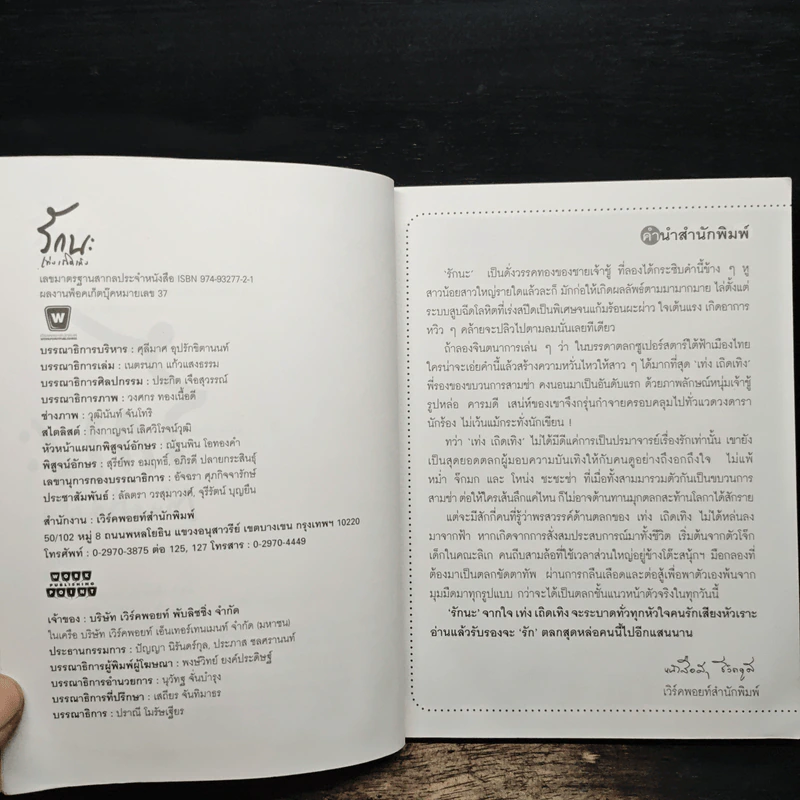 รักนะ
เท่ง เถิดเทิง
เลขมาตรฐานสากลประจำหนังสือ ISBN 974-93277-2-1
ผลงานพ็อคเก็ตบุ๊คหมายเลข 37
W
บรรณาธิการบริหาร : ศุลีมาศ อุปรักขิตานนท์
บรรณาธิการเล่ม : เนตรนภา แก้วแสงธรรม
บรรณาธิการศิลปกรรม : ประกิต เจือสุวรรณ์
บรรณาธิการภาพ : วงศกร ทองเนื้อดี
ช่างภาพ : วุฒินันท์ จันโทริ
สไตลิสต์ : กิ่งกาญจน์ เลิศวิโรจน์วุฒิ
หัวหน้าแผนกพิสูจน์อักษร : ณัฐนพิน โอทองคำ
พิสูจน์อักษร : สุรีย์พร อมฤทธิ์, อภิรดี ปลายกระสินธุ์
เลขานุการกองบรรณาธิการ : อัจฉรา ศุภกิจจารักษ์
ประชาสัมพันธ์ : ลัลตรา วรสุมาวงศ์, จุรีรัตน์ บุญยืน
สำนักงาน : เวิร์คพอยท์สำนักพิมพ์
50/102 หมู่ 8 ถนนพหลโยธิน แขวงอนุสาวรีย์ เขตบางเขน กรุงเทพฯ 10220
โทรศัพท์ : 0-2970-3875 ต่อ 125, 127 โทรสาร : 0-2970-4449
WORK
PUBLISHING
POINT
เจ้าของ : บริษัท เวิร์คพอยท์ พับลิชชิ่ง จำกัด
ในเครือ บริษัท เวิร์คพอยท์ เอ็นเทอร์เทนเมนท์ จำกัด (มหาชน)
ประธานกรรมการ : ปัญญา นิรันดร์กุล, ประภาส ชลศรานนท์
บรรณาธิการผู้พิมพ์ผู้โฆษณา : พงษ์วิทย์ ยงค์ประดิษฐ์
บรรณาธิการอำนวยการ : นุวัทฐ จั่นบำรุง
บรรณาธิการที่ปรึกษา : เสถียร จันทิมาธร
บรรณาธิการ : ปราณี โมรัษเฐียร
คำนำสำนักพิมพ์
'รักนะ' เป็นดั่งวรรคทองของชายเจ้าชู้ ที่ลองได้กระซิบคำนี้ข้าง ๆ หู
สาวน้อยสาวใหญ่รายใดแล้วละก็ มักก่อให้เกิดผลลัพธ์ตามมามากมาย ไล่ตั้งแต่
ระบบสูบฉีดโลหิตที่เร่งสปีดเป็นพิเศษจนแก้มร้อนผะผ่าว ใจเต้นแรง เกิดอาการ
หวิว ๆ คล้ายจะปลิวไปตามลมนั่นเลยทีเดียว
ถ้าลองจินตนาการเล่น ๆ ว่า ในบรรดาตลกซูเปอร์สตาร์ใต้ฟ้าเมืองไทย
ใครน่าจะเอ่ยคำนี้แล้วสร้างความหวั่นไหวให้สาว ๆ ได้มากที่สุด 'เท่ง เถิดเทิง'
พี่รองของขบวนการสามช่า คงนอนมาเป็นอันดับแรก ด้วยภาพลักษณ์หนุ่มเจ้าชู้
รูปหล่อ คารมดี เสน่ห์ของเขาจึงกรุ่นกำจายครอบคลุมไปทั่วแวดวงดารา
นักร้อง ไม่เว้นแม้กระทั่งนักเขียน !
ทว่า 'เท่ง เถิดเทิง' ไม่ได้มีดีแค่การเป็นปรมาจารย์เรื่องรักเท่านั้น เขายัง
เป็นสุดยอดตลกผู้มอบความบันเทิงให้กับคนดูอย่างถึงอกถึงใจ ไม่แพ้
หม่ำ จ๊กมก และ โหน่ง ชะชะช่า ที่เมื่อทั้งสามมารวมตัวกันเป็นขบวนการ
สามช่า ต่อให้ใครเส้นลึกแค่ไหน ก็ไม่อาจต้านทานมุกตลกสะท้านโลกาได้สักราย
แต่จะมีสักกี่คนที่รู้ว่าพรสวรรค์ด้านตลกของ เท่ง เถิดเทิง ไม่ได้หล่นลง
มาจากฟ้า หากเกิดจากการสั่งสมประสบการณ์มาทั้งชีวิต เริ่มต้นจากตัวโจ๊ก
เด็กในคณะลิเก คนถีบสามล้อที่ใช้เวลาส่วนใหญ่อยู่ข้างโต๊ะสนุ้กฯ มือกลองที่
ต้องมาเป็นตลกขัดตาทัพ ผ่านการกลืนเลือดและต่อสู้เพื่อพาตัวเองพ้นจาก
มุมมืดมาทุกรูปแบบ กว่าจะได้เป็นตลกชั้นแนวหน้าตัวจริงในทุกวันนี้
'รักนะ' จากใจ เท่ง เถิดเทิง จะระบาดทั่วทุกหัวใจคนรักเสียงหัวเราะ
อ่านแล้วรับรองจะ 'รัก' ตลกสุดหล่อคนนี้ไปอีกแสนนาน
เวิร์คพอยท์สำนักพิมพ์